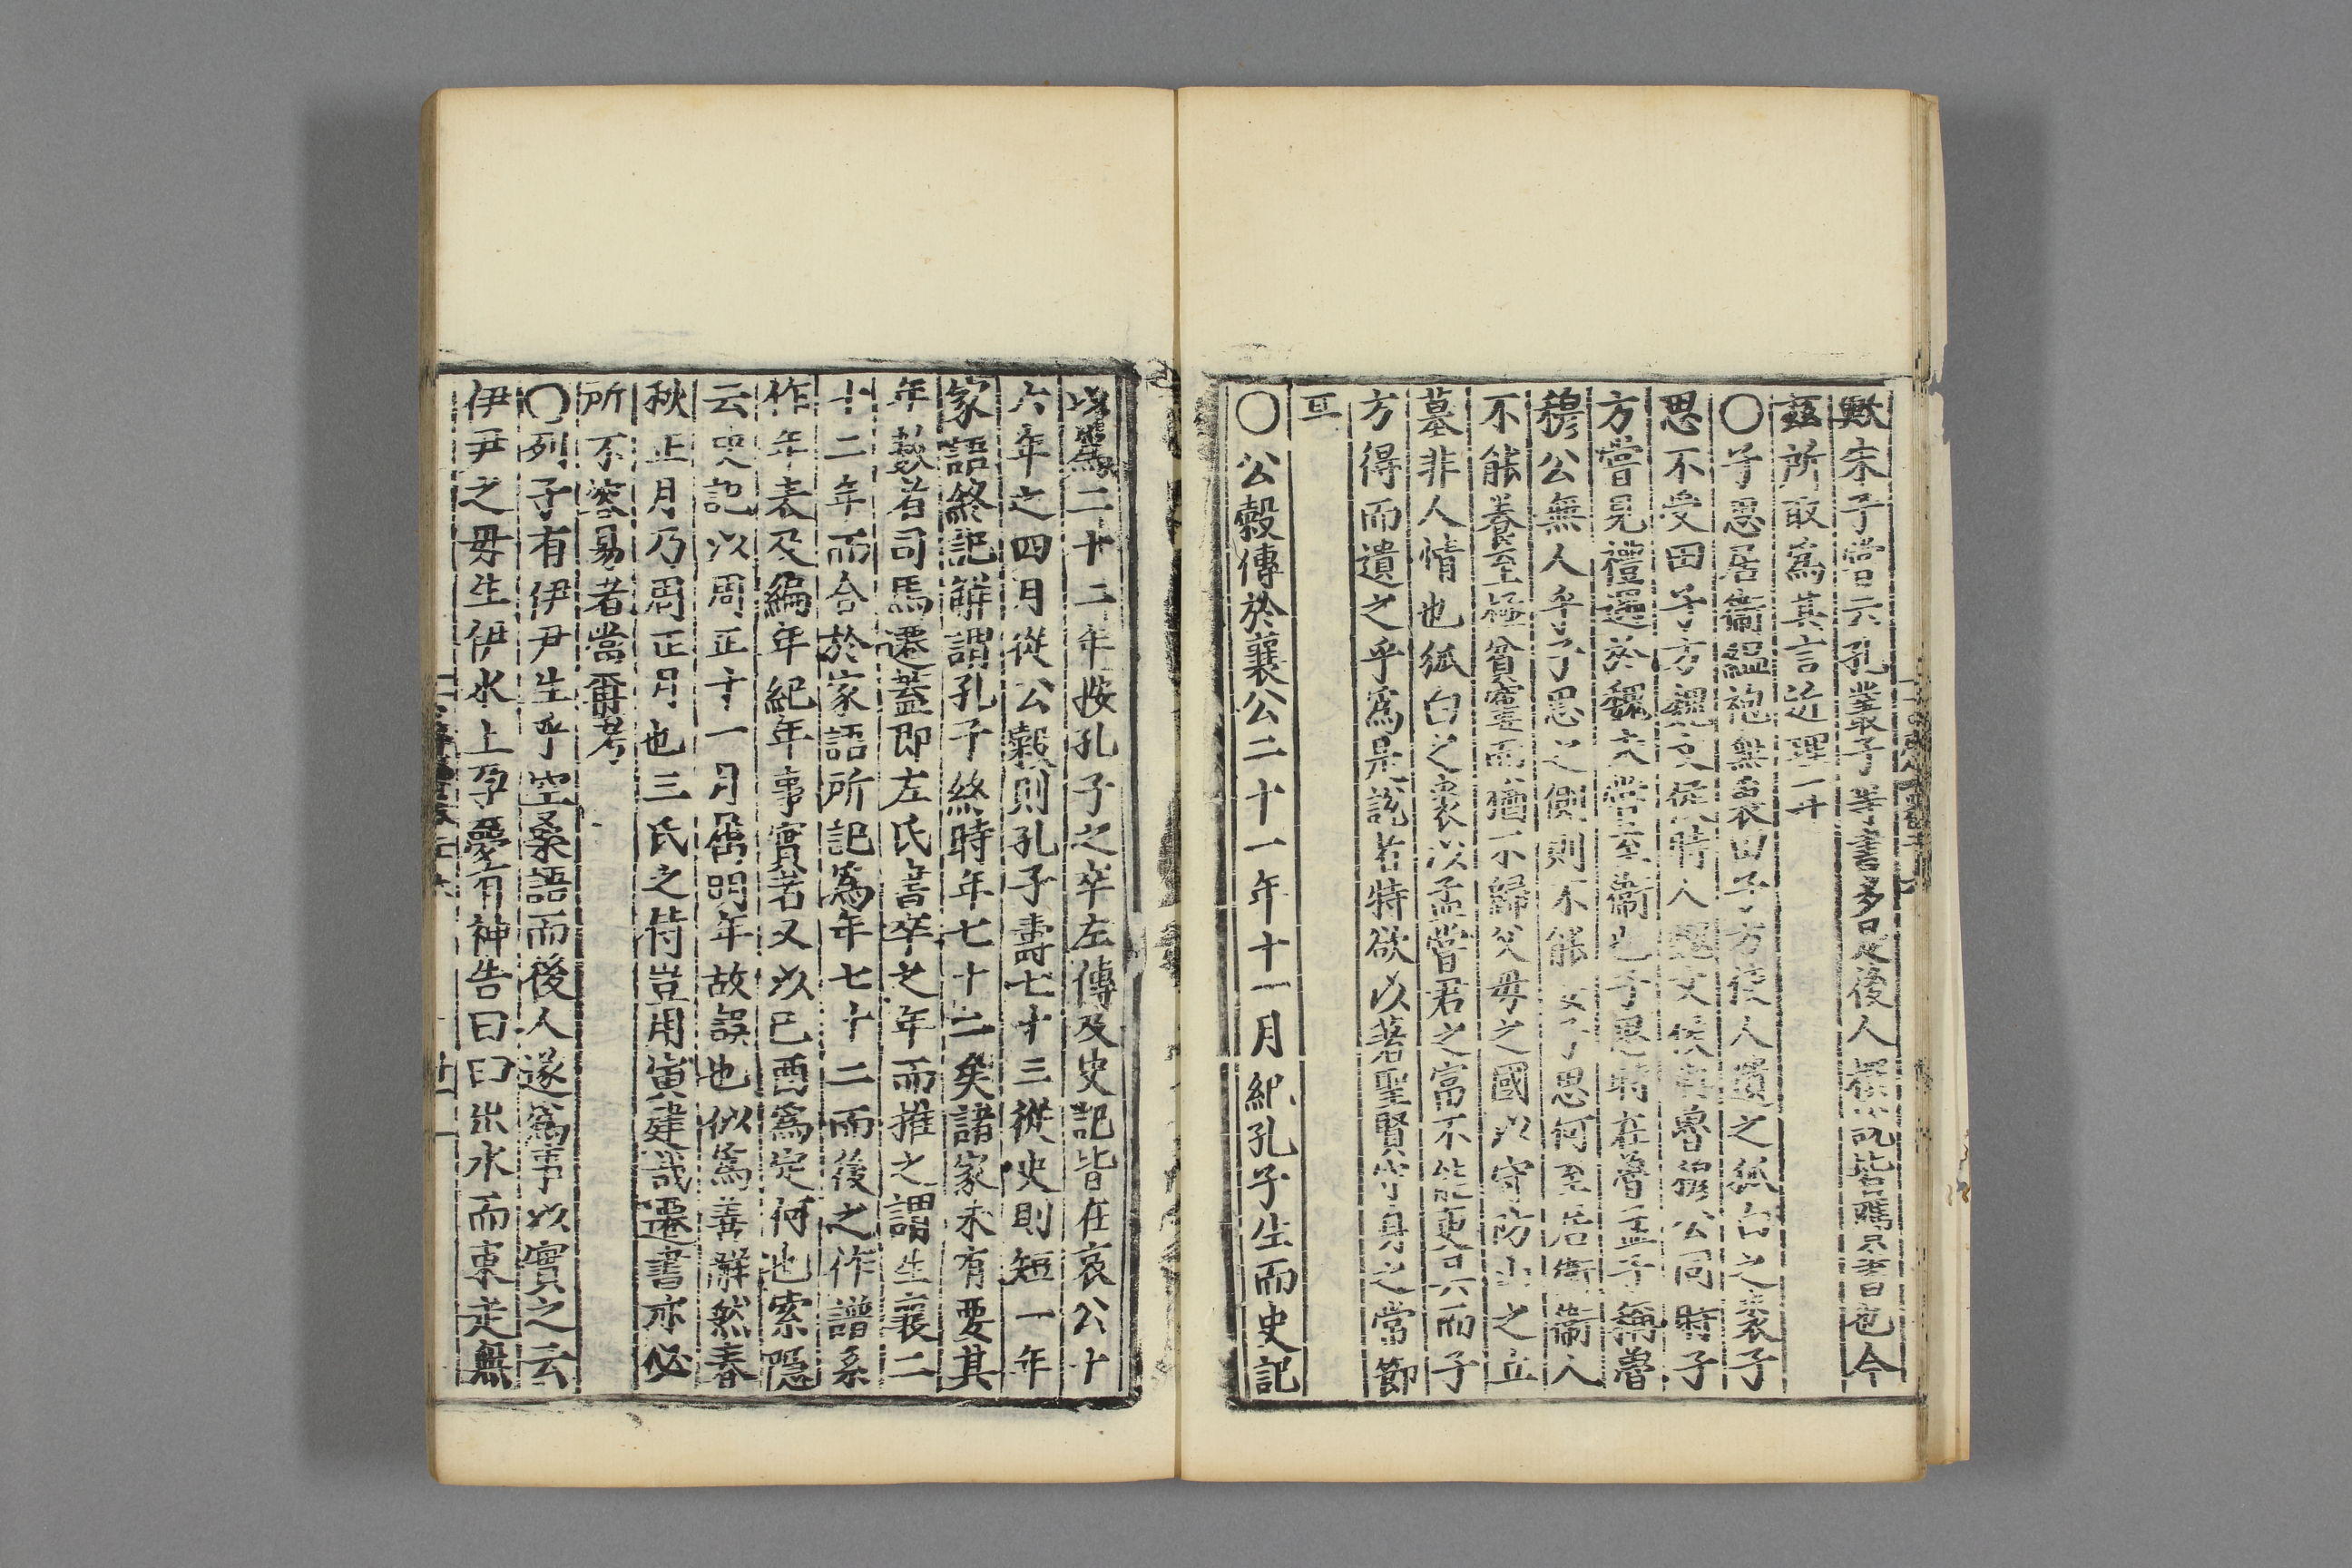 歟朱子嘗云孔叢子等書多是後人撰者也今
茲所取爲其言近理一十
〇子思居衞縕袍無表田子方使人遺之狐白之裘子
思不受田子方魏文侯時人魏文侯與魯穆公同時子
方嘗見禮遇於魏未嘗至衞也子思時在魯孟子稱魯
穆公無人乎子思之側則不能安子思何至居衞衞人
不能養至極貧窶而猶不歸父母之國以守防山之丘
墓非人情也狐白之裘以孟嘗君之富不能更具而子
方得而遺之乎爲是說者特欲以著聖賢守身之常節
耳
〇公穀傳於襄公二十一年十一月紀孔子生而史記
以爲二十二年按孔子之卒左傳及史記皆在哀公十
六年之四月從公穀則孔子壽七十三從史則短一年
家語終記解謂孔子終時年七十二矣諸家未有要其
年數者司馬遷蓋即左氏書卒之年而推之謂生襄二
十二年而合於家語所記爲年七十二而後之作譜系
作年表及編年紀年事實者又以己酉爲定何也索隱
云史記以周正十一月屬明年故誤也似爲善解然春
秋正月乃周正月也三氏之傳豈用寅建哉遷書亦必
所不容易者當再考
〇列子有伊尹生乎空桑語而後人遂爲事以實之云
伊尹之母生伊水上孕夢有神告曰臼出水而東走無